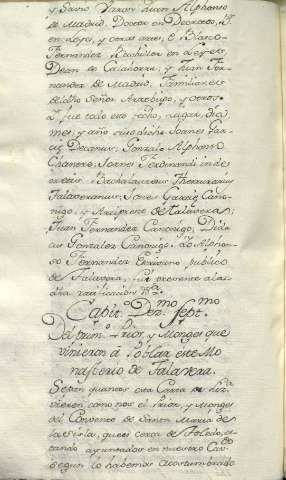 y Savio Varon Juan Alphonso
de Madrid, Doctor en Decretos, B.r
en Leyes, y otras artes, e Blasco
Fernandez Bachiller en Leyes,
Dean de Calahorra, y Juan Fer-
nandez de Madrid, Familiares
de dicho Señor Arzobispo, y otros.
a fue todo esto fecho, lugar, dia,
mes, y año suso dicho Joanes Gar-
cia Decanus, Gonzalo Alphonsi
Chantero, Joanes Ferdinandi in de-
cretis Bachalaureus Thesaurarius
Talaveranus, Joanes Garcia Cano-
nigo, y Arcipreste de Talavera,
Juan Fernandez Canonigo, Dida-
cus Gonzalez Canonigo. Yo Alphon-
so Fernandez Escrivano publico
de Talavera, fui presente a la
dha ratificacion &.a
Capit.o Dez.mo Sept.mo
Del prim.o Prior, y Monges que
vinieron á poblar este Mo-
nasterio de Talavera.
Sepan quantos esta Carta
vieren como nos el Prior, y Monges
del Convento de Santa Maria de
la Sisla, que es cerca de Toledo, es-
tando ayuntados en nuestro Cav.do
segun lo habemos acostumbrado